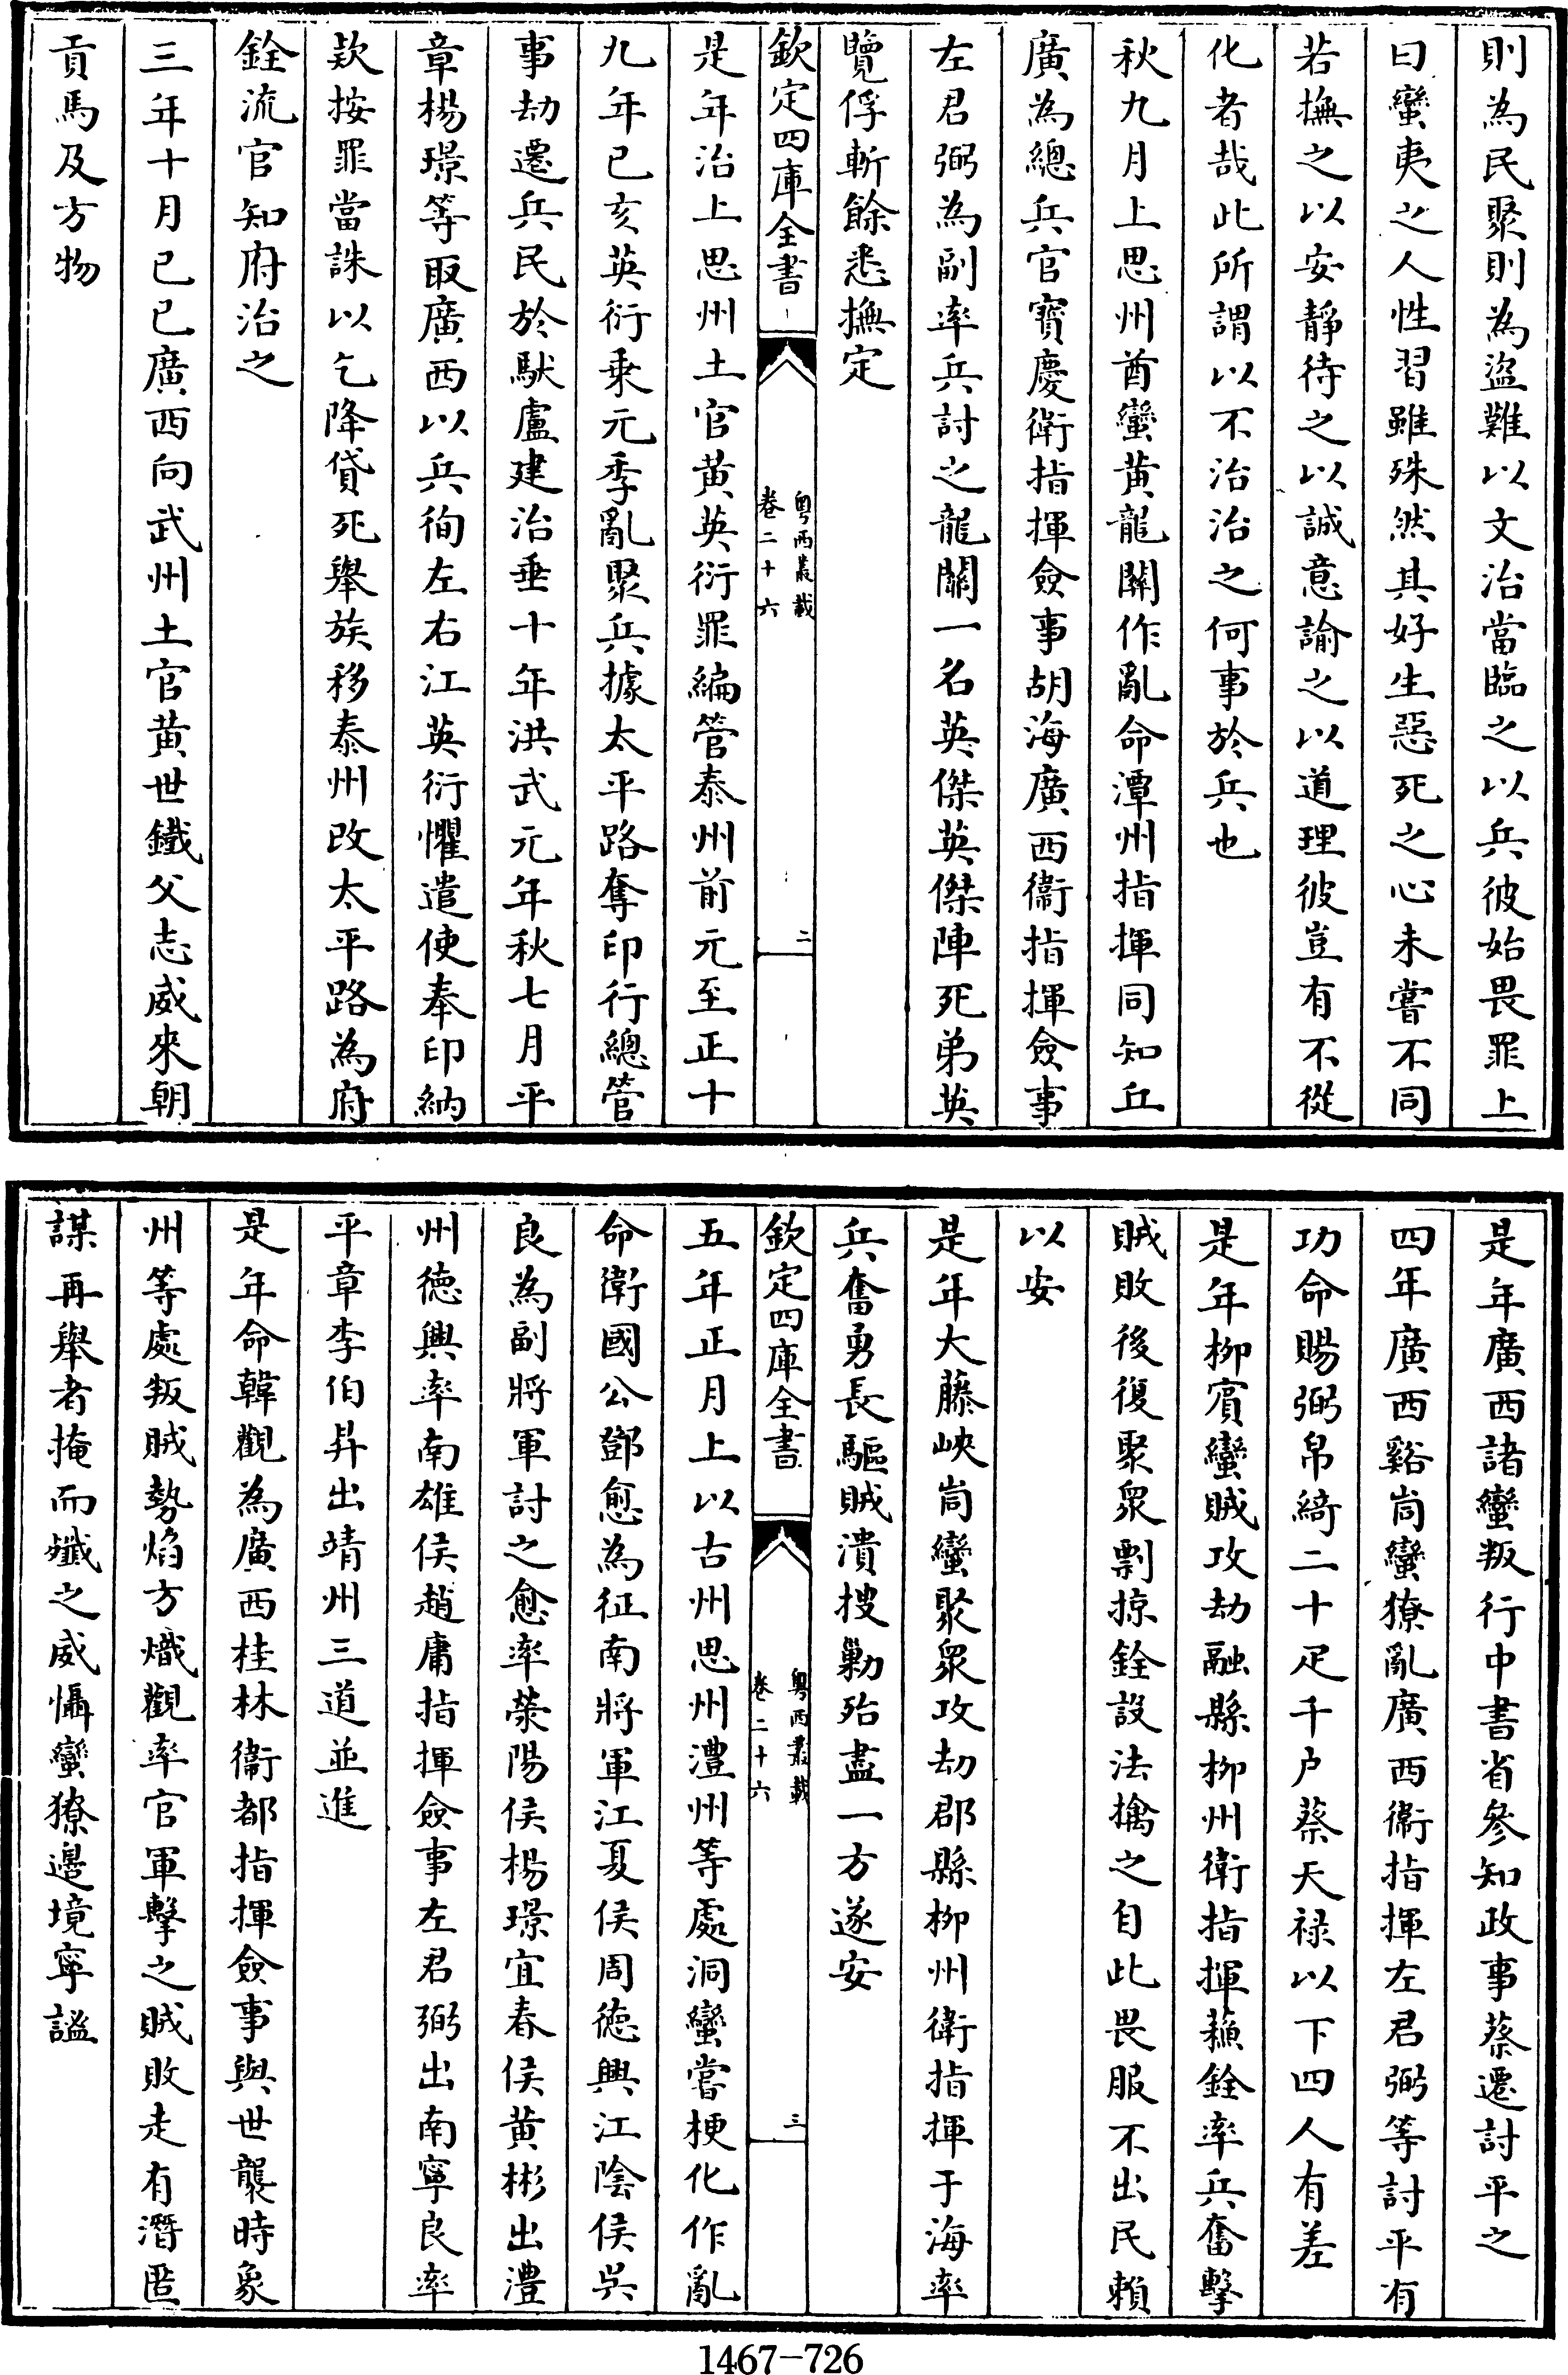 則為民聚則為盜難以文治當臨之以兵彼始畏罪上
曰蠻夷之人性習雖殊然其好生惡死之心未嘗不同
若撫之以安靜待之以誠意諭之以道理彼豈有不從
化者哉此所謂以不治治之何事於兵也
秋九月上思州酋蠻黄龍關作亂命潭州指揮同知丘
廣為總兵官寳慶衛指揮僉事胡海廣西衞指揮僉事
左君弼為副率兵討之龍關一名英傑英傑陣死弟英
覽俘斬餘悉撫定
欽定四庫全書
粤西叢載
卷二十六
二
是年治上思州土官黄英衍罪編管泰州前元至正十
九年已亥英衍乘元季亂聚兵據太平路奪印行總管
事劫遷兵民於馱盧建治垂十年洪武元年秋七月平
章楊璟等取廣西以兵徇左右江英衍懼遣使奉印納
款按罪當誅以乞降貸死舉族移泰州改太平路為府
銓流官知府治之
三年十月已已廣西向武州土官黄世鐵父志威來朝
貢馬及方物
是年廣西諸蠻叛行中書省參知政事蔡遷討平之
四年廣西谿峝蠻獠亂廣西衞指揮左君弼等討平有
功命賜弼帛綺二十疋千户蔡天禄以下四人有差
是年栁賔蠻賊攻劫融縣栁州衛指揮蘓銓率兵奮擊
賊敗後復聚衆剽掠銓設法擒之自此畏服不出民賴
以安
是年大藤峽峝蠻聚衆攻劫郡縣栁州衛指揮于海率
兵奮勇長驅賊潰搜勦殆盡一方遂安
欽定四庫全書
粤西叢載
卷二十六
三
五年正月上以古州思州澧州等處洞蠻嘗梗化作亂
命衛國公鄧愈為征南將軍江夏侯周徳興江陰侯吳
良為副將軍討之愈率滎陽侯楊璟宜春侯黄彬出澧
州徳興率南雄侯趙庸指揮僉事左君弼出南寧良率
平章李伯昇出靖州三道並進
是年命韓觀為廣西桂林衞都指揮僉事與世襲時象
州等處叛賊勢焰方熾觀率官軍擊之賊敗走有潛匿
謀再舉者掩而殲之威懾蠻獠邉境寧謐
1467-726